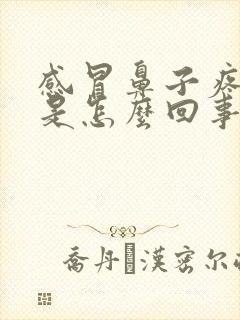 感冒鼻子疼
是怎麼回事
喬丹□漢密尔